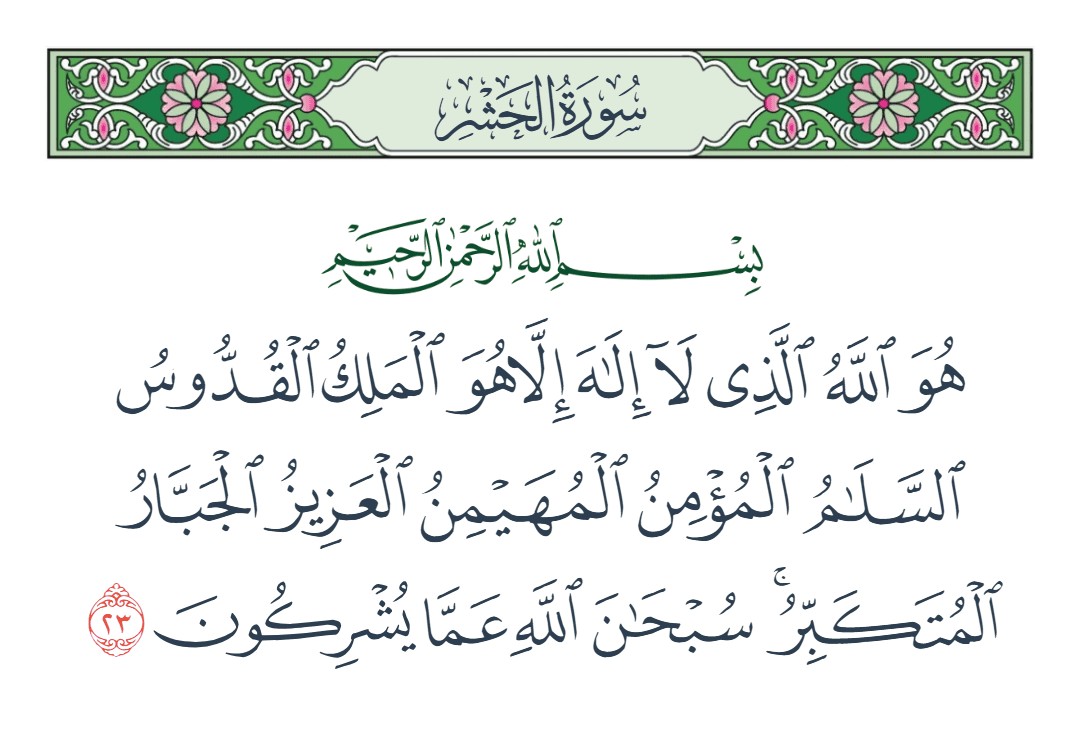 سُورَةُ الحَشْرِ
بِسْمِ ٱللَّهِ ٱلرَّحْمَٰنِ ٱلرَّحِيمِ
هُوَ ٱللَّهُ ٱلَّذِى لَآ إِلَٰهَ إِلَّا هُوَ ٱلْمَلِكُ ٱلْقُدُّوسُ
ٱلسَّلَٰمُ ٱلْمُؤْمِنُ ٱلْمُهَيْمِنُ ٱلْعَزِيزُ ٱلْجَبَّارُ
ٱلْمُتَكَبِّرُ ۚ سُبْحَٰنَ ٱللَّهِ عَمَّا يُشْرِكُونَ ٢٣